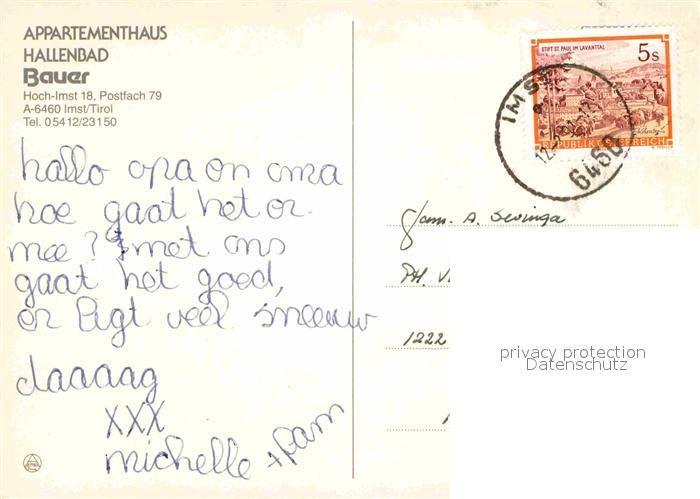 APPARTEMENTHAUS
HALLENBAD
Bauer
Hoch-Imst 18, Postfach 79
A-6460 Imst/Tirol
Tel. 05412/23150
hallo opa en oma
hoe gaat het er
mee? met ons
gaat het goed,
er ligt veel sneeuw
daaaag
XXX
michelle + pam
STIFT ST. PAUL IM LAVANTTAL
5 S
REPUBLIK ÖSTERREICH
IMST
6460
Fam. A. Sevinga
PH. V
1222
privacy protection
Datenschutz